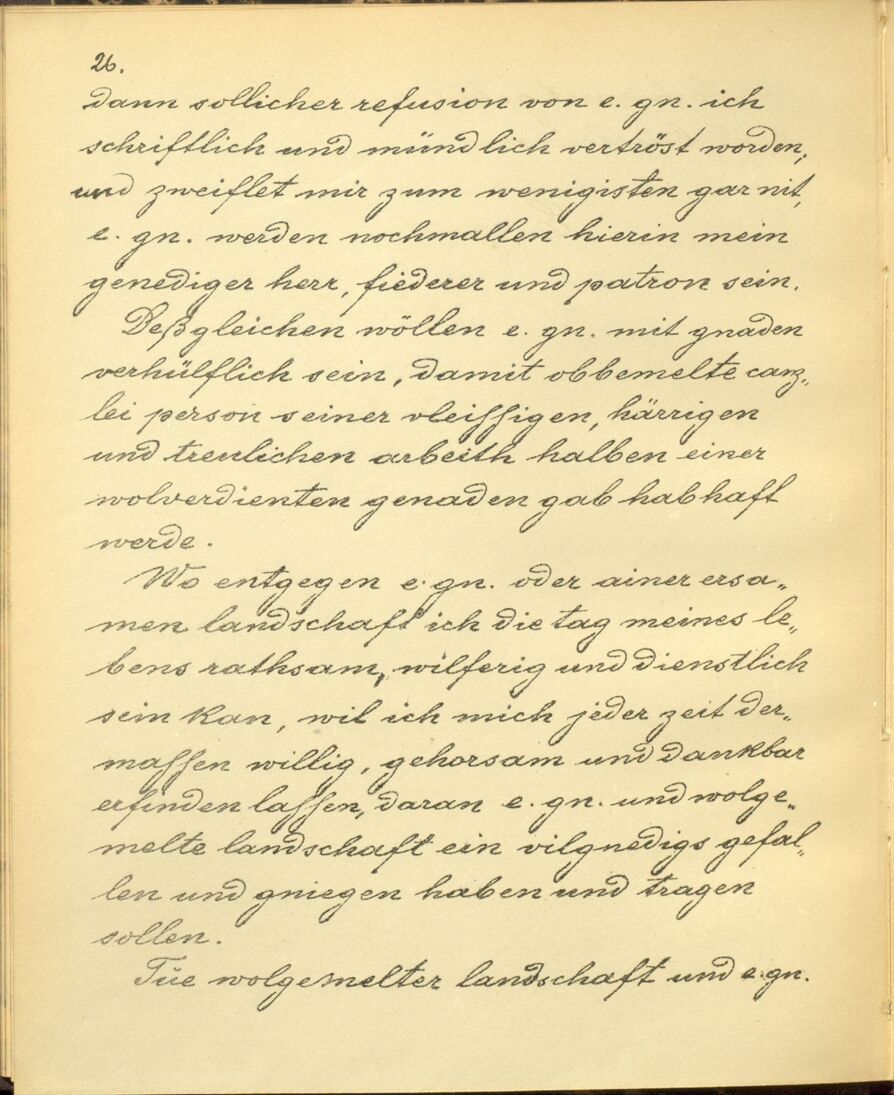 26.
dann sollicher refusion von e. gn. ich
schriftlich und mündlich vertröst worden,
und zweiflet mir zum wenigisten gar nit,
e. gn. werden nochmallen hierin mein
genediger herr, fiederer und patron sein.
Deßgleichen wöllen e. gn. mit gnaden
verhülflich sein, damit obbemelte canz„
lei person seiner vleiſſigen, härrigen
und treulichen arbeith halben einer
wolverdienten genaden gab habhaft
werde.
Wo entgegen e. gn. oder ainer ersa„
men landschaft ich die tag meines le„
bens rathsam, wilferig und dienstlich
sein kan, wil ich mich jeder zeit der„
maſſen willig, gehorsam und dankbar
erfinden laſſen, daran e. gn. und wolge„
melte landschaft ein vilgnedigs gefal„
len und gniegen haben und tragen
sollen.
Tüe wolgemelter landschaft und e. gn.